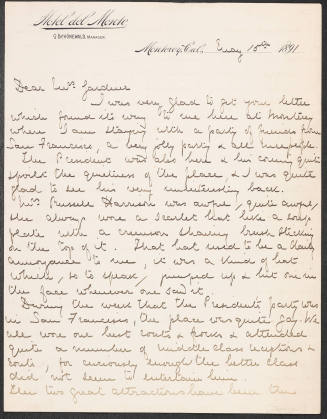 Hotel del Monte
G. SCHÖNEWALD, MANAGER.
Monterey, Cal., May 15th 1891
Dear Mrs. Gardner
I was very glad to get your letter
which found its way to me here at Monterey
where I am staying with a party of friends from
San Francisco, a very jolly party & all
The President was also here & his coming quite
spoilt the quietness of the place, & I was quite
glad to see his very uninteresting back.
Mrs. Russell Harrison was awful, quite awful,
she always wore a scarlet hat like a soup
plate with a crimson shaving brush sticking
on the top of it. That hat used to be a daily
annoyance to me, it was a kind of hat
which, so to speak, jumped up & hit one in
the face whenever one saw it.
During the week that the Presidents party was
in San Francisco, the place was quite gay. We
all wore our best coats & & attended
quite a number of middle class receptions &
, for curiously enough the better class
did not seem to entertain him.
The two great attractions have been the